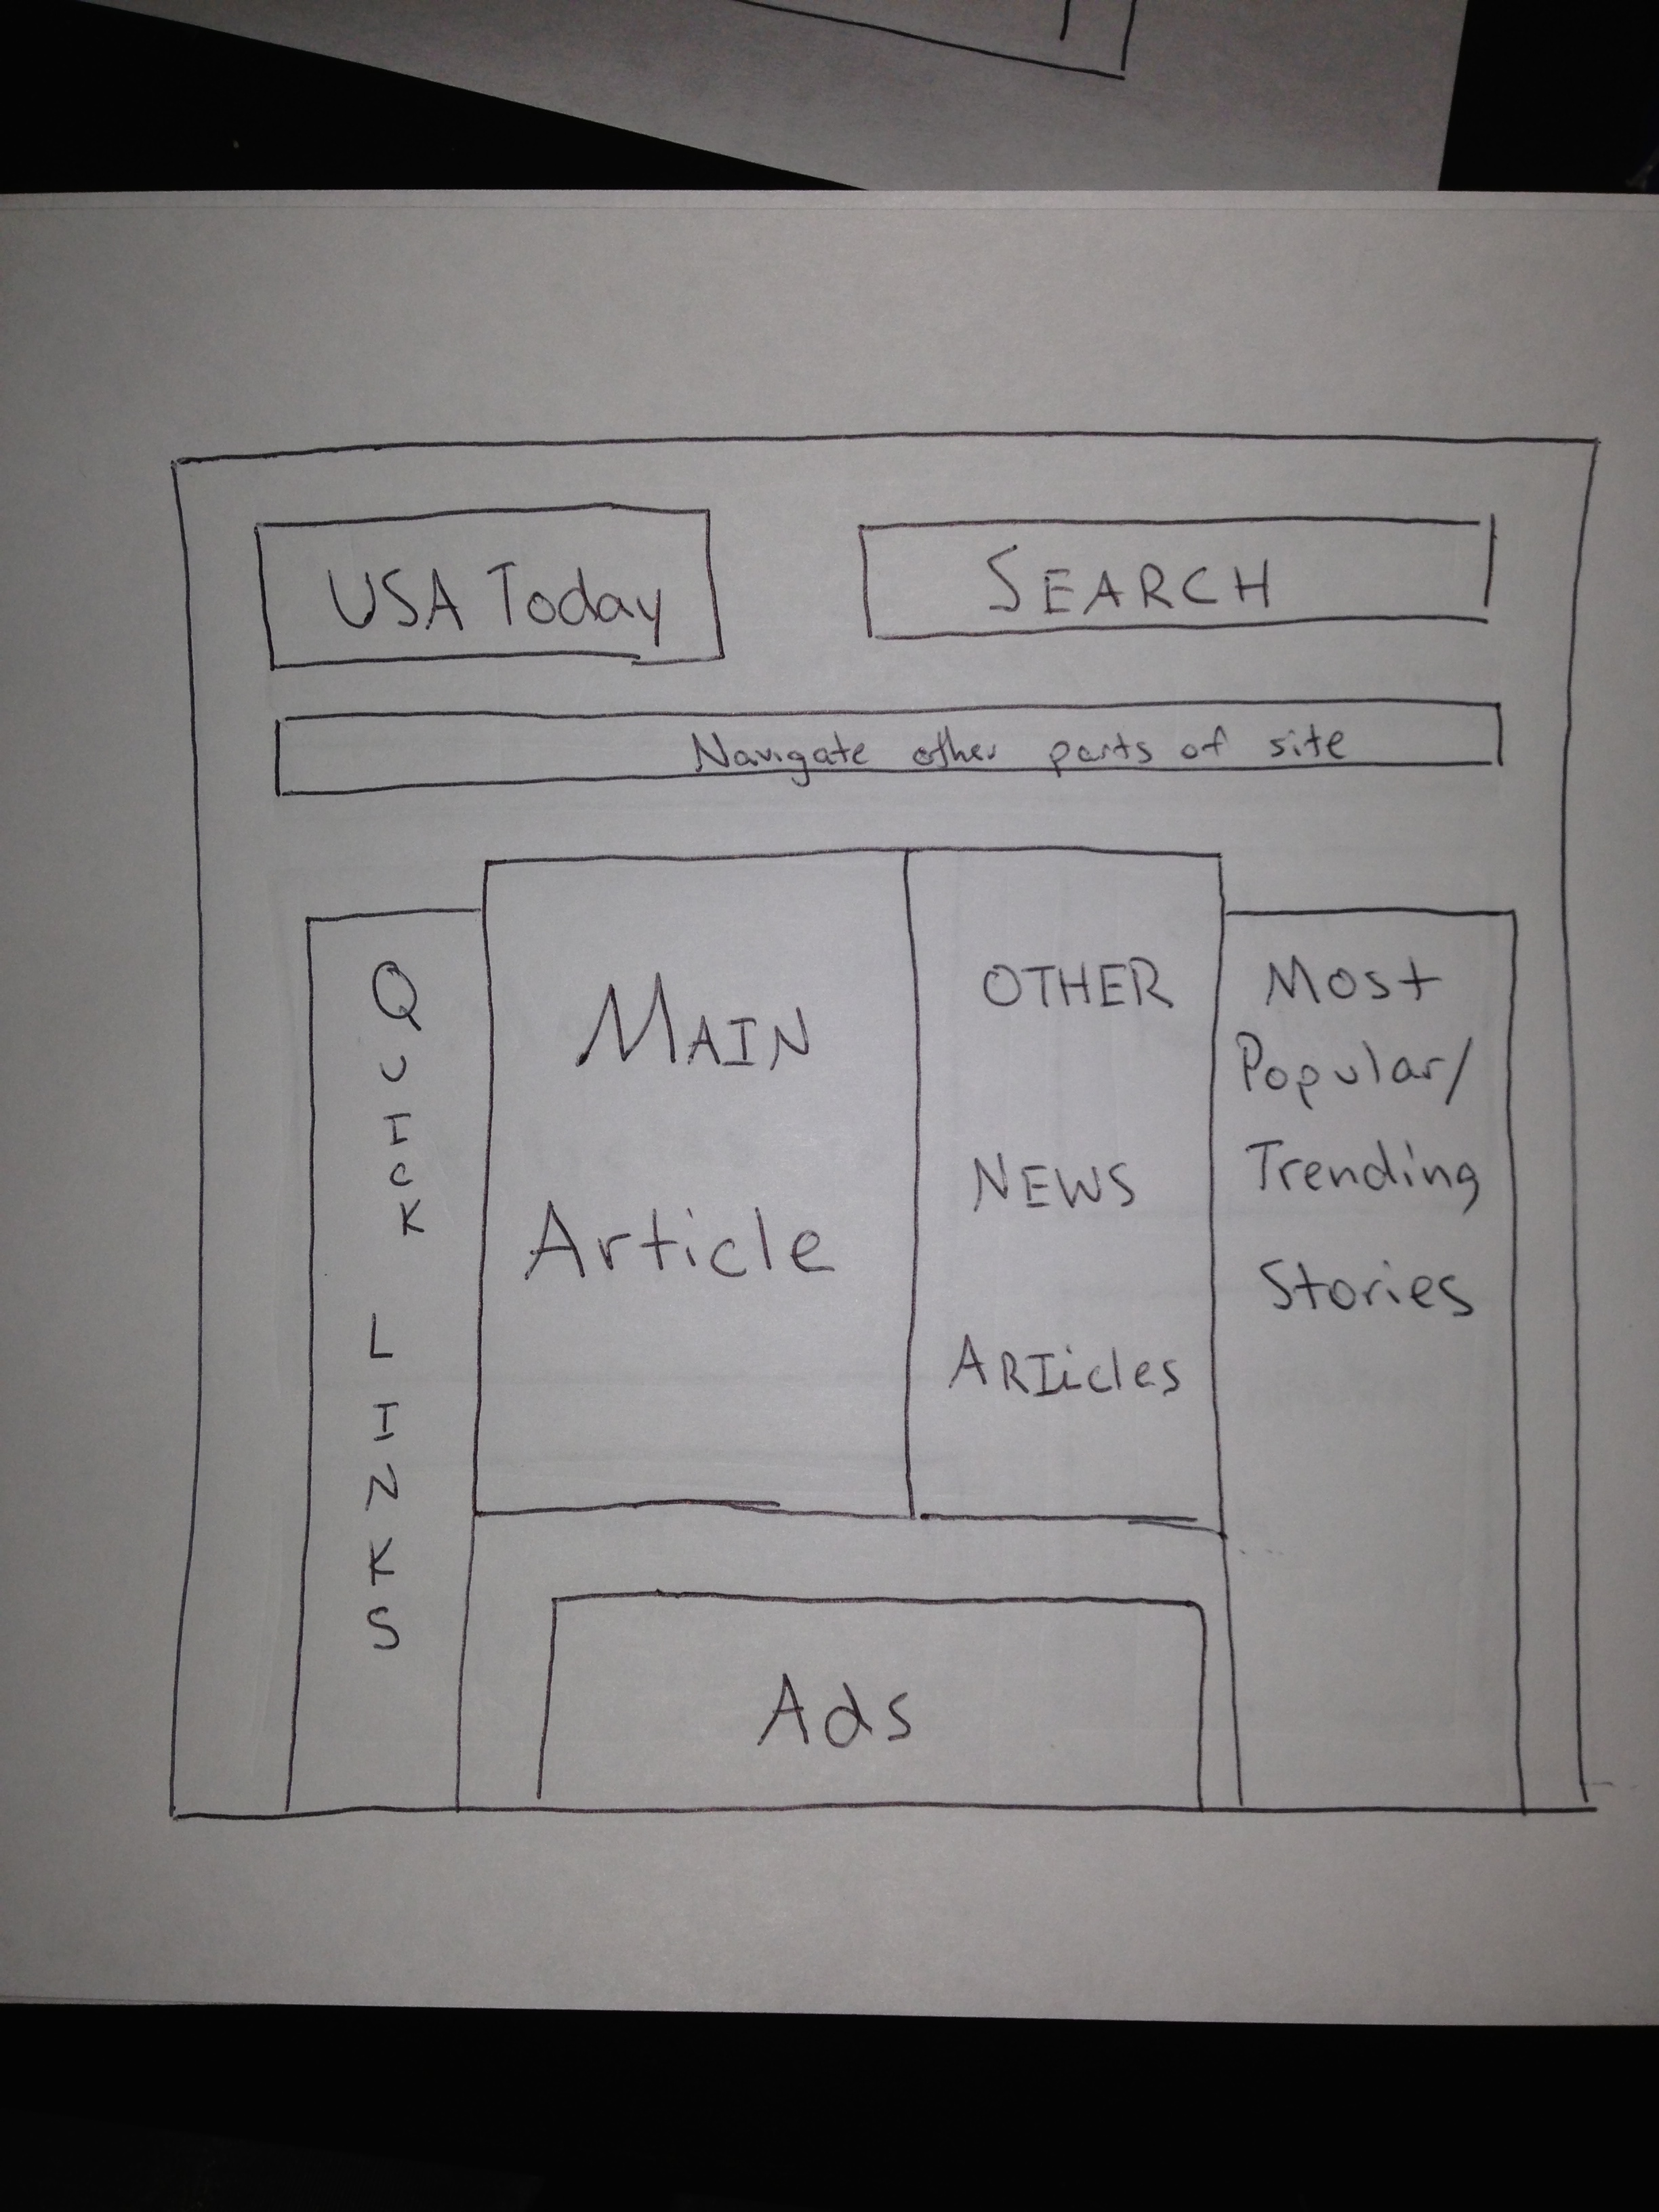 USA Today
SEARCH
Navigate other parts of site
QUICK LINKS
MAIN
Article
OTHER
NEWS
ARTicles
Most
Popular/
Trending
Stories
Ads